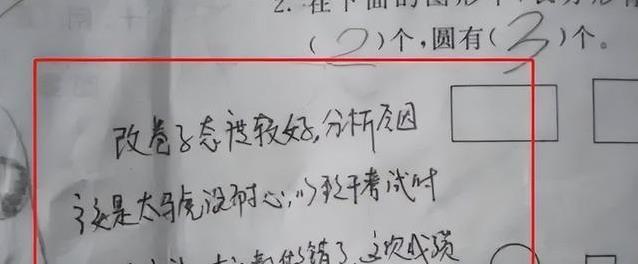 2. 在下面的图形中,长方形有
( 2 )个,圆有( 3 )个。
改卷子态度较好,分析原因
主要是太马虎没耐心,以致于考试时
都做错了,这次成绩